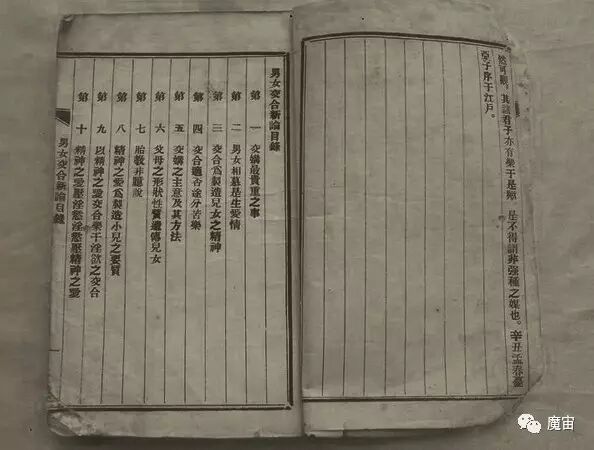 然可觀。其該君子亦有樂于是歟 是不得謂非強種之媒也。辛丑孟春
亞子序于江戶。
男女交合新論目錄
第一 交媾最貴重之事
第二 男女相慕是生愛情
第三 交合爲製造兒女之精神
第四 交合適否途分苦樂
第五 交媾之主意及其方法
第六 父母之形狀性質遺傳兒女
第七 胎教非臆說
第八 精神之愛爲製造小兒之要質
第九 以精神之愛交合樂于淫欲之交合
第十 精神之愛壓淫慾淫慾壓精神之愛
男女交合新論目錄
魔宙